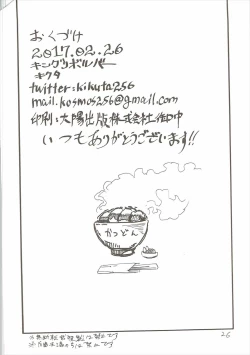 おくづけ
2017.02.26
キングリボルバー
キクタ
twitter:kikuta256
mail.kosmos256@gmail.com
印刷:太陽出版株式会社御中
いつもありがとうございます!!
かつどん
26